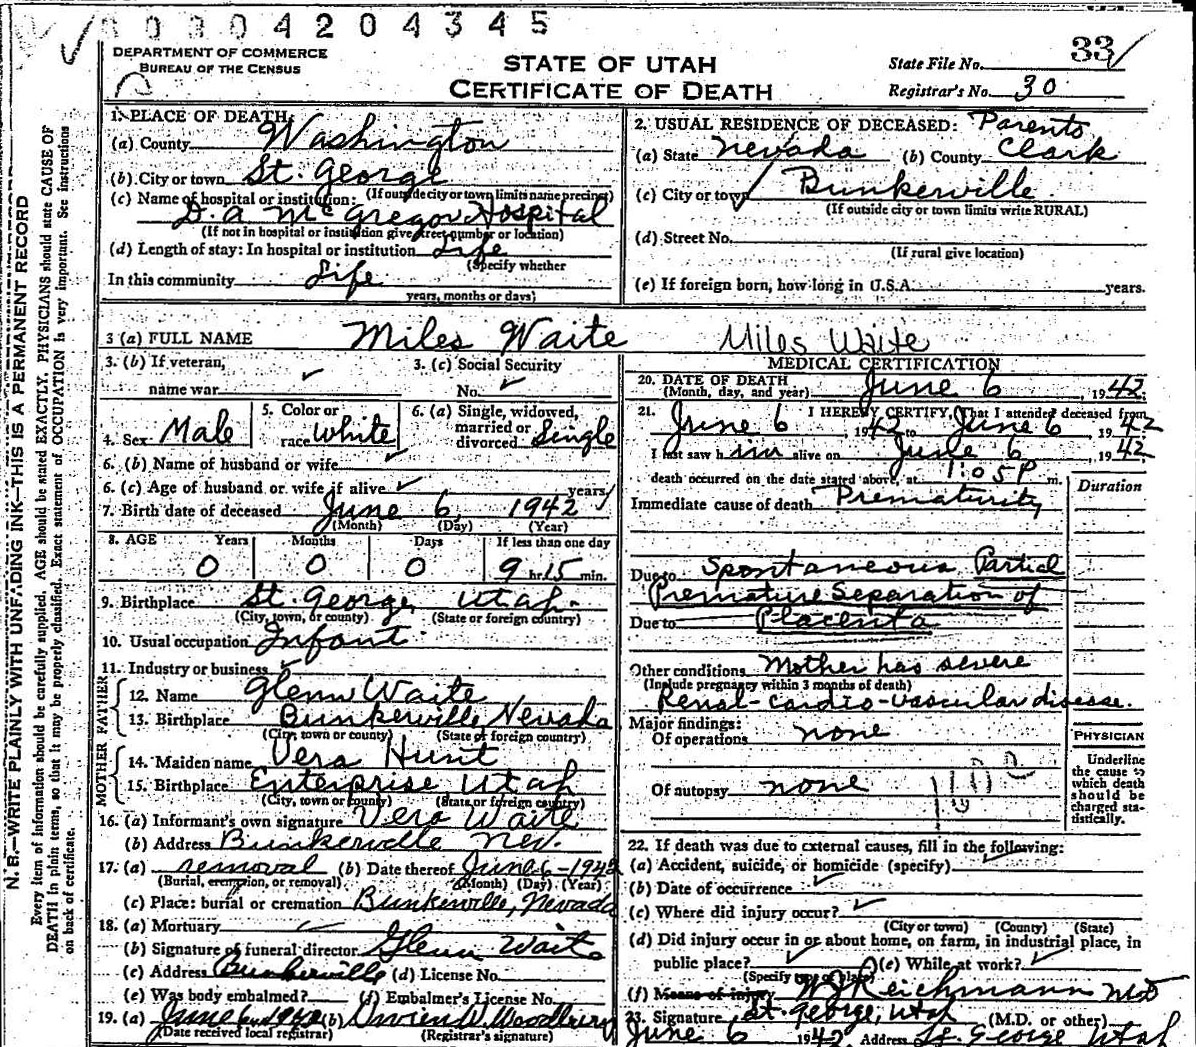 0 3 0 4 2 0 4 3 4 5
DEPARTMENT OF COMMERCE
BUREAU OF THE CENSUS
STATE OF UTAH
CERTIFICATE OF DEATH
State File No. 33
Registrar's No. 30
1. PLACE OF DEATH:
(a) County Washington
(b) City or town St. George
(If outside city or town limits name precinct)
(c) Name of hospital or institution:
D. A. McGregor Hospital
(If not in hospital or institution give street number or location)
(d) Length of stay: In hospital or institution Life
(Specify whether
In this community Life
years, months or days)
2. USUAL RESIDENCE OF DECEASED: Parents
(a) State Nevada (b) County Clark
(c) City or town Bunkerville
(If outside city or town limits write RURAL)
(d) Street No.
(If rural give location)
(e) If foreign born, how long in U.S.A. years.
3 (a) FULL NAME Miles Waite Miles Waite
3. (b) If veteran,
name war
3. (c) Social Security
No.
4. Sex Male
5. Color or
race White
6. (a) Single, widowed,
married or
divorced Single
6. (b) Name of husband or wife
6. (c) Age of husband or wife if alive years
7. Birth date of deceased June 6, 1942
(Month) (Day) (Year)
8. AGE Years Months Days If less than one day
0 0 0 9 hr. 15 min.
9. Birthplace St. George, Utah.
(City, town, or county) (State or foreign country)
10. Usual occupation Infant
11. Industry or business
FATHER
12. Name Glenn Waite
13. Birthplace Bunkerville, Nevada
(City, town or county) (State or foreign country)
MOTHER
14. Maiden name Vera Hunt
15. Birthplace Enterprise, Utah
(City, town or county) (State or foreign country)
16. (a) Informant's own signature Vera Waite
(b) Address Bunkerville Nev.
17. (a) removal (b) Date thereof June 6-1942
(Burial, cremation, or removal) (Month) (Day) (Year)
(c) Place: burial or cremation Bunkerville, Nevada
18. (a) Mortuary
(b) Signature of funeral director Glenn Waite
(c) Address Bunkerville (d) License No.
(e) Was body embalmed? (f) Embalmer's License No.
19. (a) June (b) Woodbury
(Date received local registrar) (Registrar's signature)
MEDICAL CERTIFICATION
20. DATE OF DEATH
(Month, day, and year) June 6, 1942.
21. I HEREBY CERTIFY, That I attended deceased from
June 6, 1942 to June 6 1942
I last saw him alive on June 6, 1942
death occurred on the date stated above, at 1:05 P m.
Duration
Immediate cause of death Prematurity
Due to Spontaneous Partial
Premature Separation of
Due to Placenta
Other conditions Mother has severe
(Include pregnancy within 3 months of death)
Renal-cardio-vascular disease.
Major findings:
Of operations none
Of autopsy none
PHYSICIAN
Underline
the cause to
which death
should be
charged sta-
tistically.
22. If death was due to external causes, fill in the following:
(a) Accident, suicide, or homicide (specify)
(b) Date of occurrence
(c) Where did injury occur?
(City or town) (County) (State)
(d) Did injury occur in or about home, on farm, in industrial place, in
public place? (e) While at work?
(Specify type of place)
(f) Means of injury W J Reichmann MD
23. Signature St. George, Utah (M.D. or other)
June 6 1942 Address St. George Utah
N. B.—WRITE PLAINLY WITH UNFADING INK—THIS IS A PERMANENT RECORD
Every item of information should be carefully supplied. AGE should be stated EXACTLY. PHYSICIANS should state CAUSE OF
DEATH in plain terms, so that it may be properly classified. Exact statement of OCCUPATION is very important. See instructions
on back of certificate.